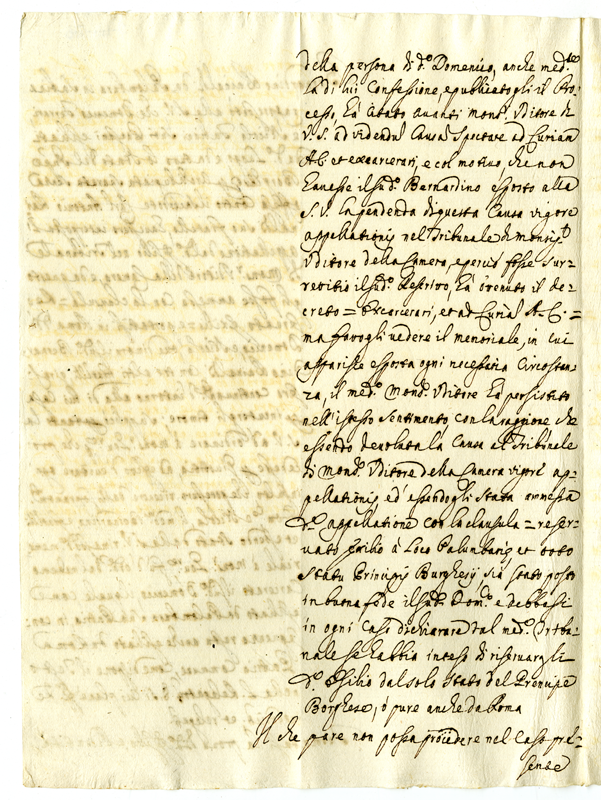 della persona di d.º Domenico, anche med.te
la di lui Confessione, e publicatogli il Pro:
cesso, hà citato avanti mons.r Uditore di
V. S. ad videndū Causā Spectare ad Curiam
A C et excarcerari, e col motivo, che non
havesse il sud.º Bernardino esposto alla
S. V. la pendenza di questa Causa vigore
appellationis nel Tribunale di monsig.r
Uditore della Camera, e perciò fosse sur=
retitio il sud.º Rescritto, hà ottenuto il de=
creto = Excarcerari, et ad Curiā A. C. =
ma fattogli vedere il memoriale, in cui
apparisce esposta ogni necessaria Circostan=
za, il med.º Mons.r Uditore hà persistito
nell'istesso sentimento, con la raggione che
essendo devoluta la Causa al Tribunale
di Mons.r Uditore della Camera vigore ap=
pellationis ed'essendogli stata ammessa
d.ª appellatione con la clausula = reser=
vato exilio à Loco Palumbariæ, et toto
Statu Principis Burghesij sia stato posto
in buona fede il sud.º Dom.co e debbasi
in ogni caso dichiarare dal med.º Tribu=
nale se habbia inteso di riservargli
d.º Esilio dal solo Stato del Prencipe
Borghese, ò pure anche da Roma
Il che pare non possa procedere nel Caso pre=
sente